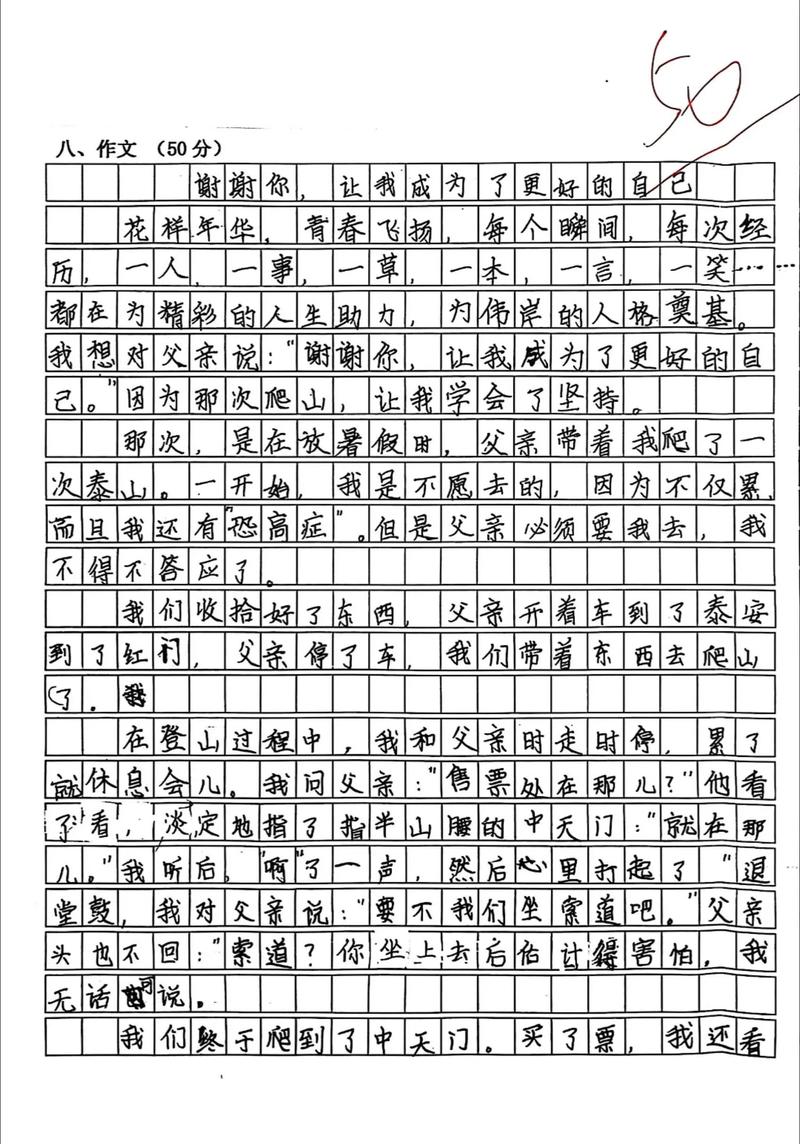 50
八、作文 （50分）
谢谢你，让我成为了更好的自己
花样年华，青春飞扬，每个瞬间，每次经
历，一人，一事，一草，一本，一言，一笑……
都在为精彩的人生助力，为伟岸的人格奠基。
我想对父亲说："谢谢你，让我成为了更好的自
己。"因为那次爬山，让我学会了坚持。
那次，是在放暑假时，父亲带着我爬了一
次泰山。一开始，我是不愿去的，因为不仅累，
而且我还有"恐高症"。但是父亲必须要我去，我
不得不答应了。
我们收拾好了东西，父亲开着车到了泰安
到了红门，父亲停了车，我们带着东西去爬山
了．
在登山过程中，我和父亲时走时停，累了
就休息会儿。我问父亲："售票处在那儿？"他看
了看，淡定地指了指半山腰的中天门："就在那
儿。"我听后，"啊"了一声，然后心里打起了"退
堂鼓，我对父亲说："要不我们坐索道吧。"父亲
头也不回："索道？你坐上去后估计得害怕，我
无话可说。
我们终于爬到了中天门。买了票，我还看